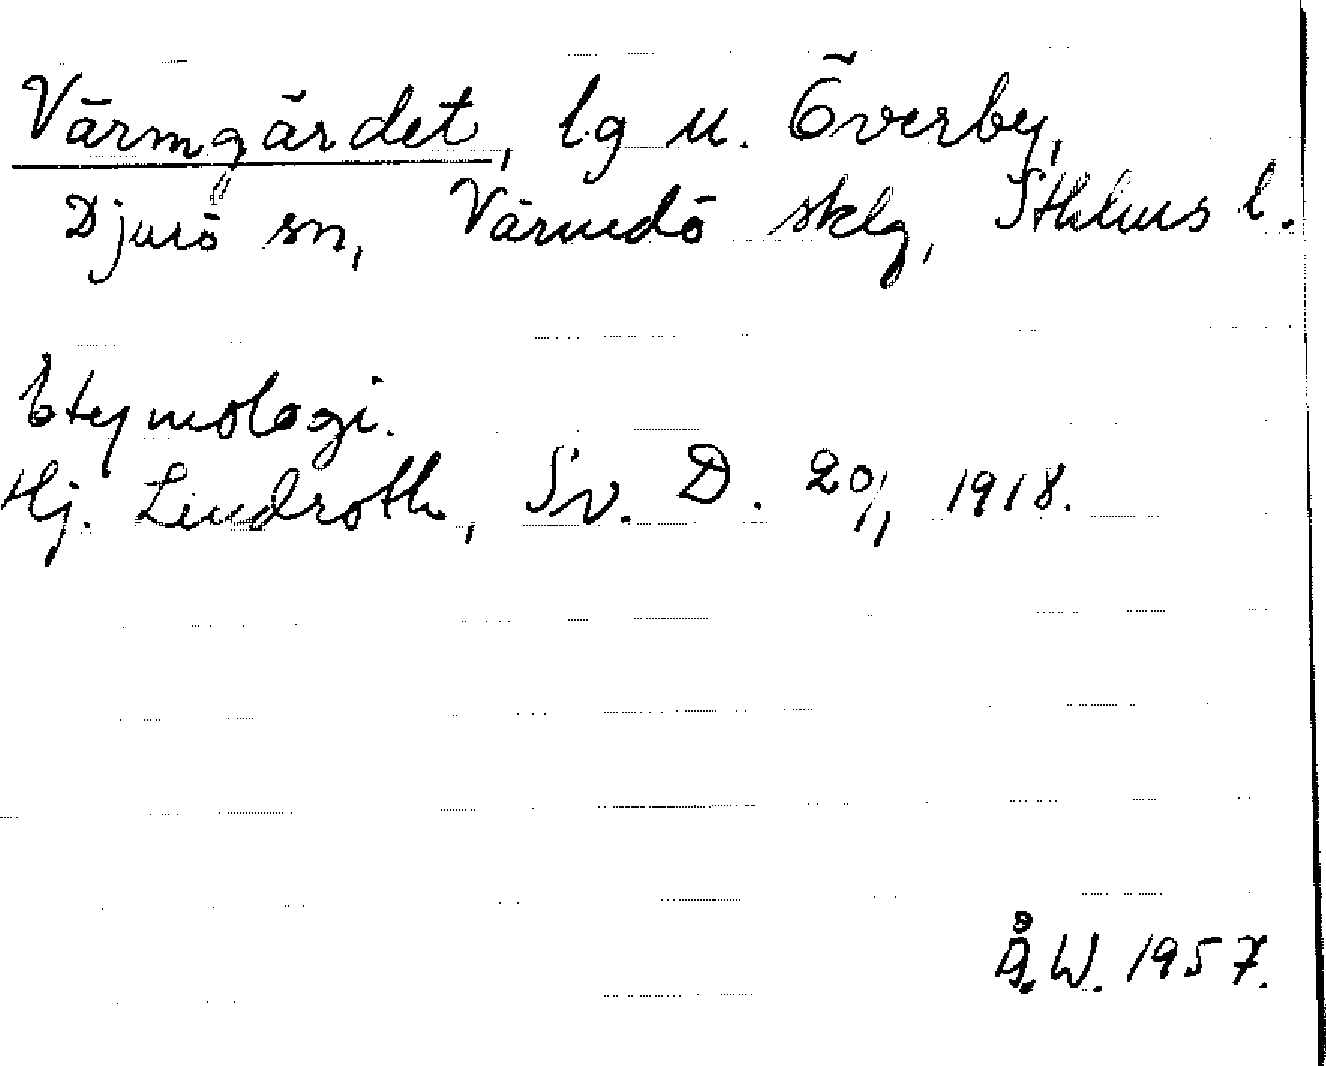 Värmgärdet, lg u. Överby,
Djurö sn, Värmdö sklg, Sthlms l.
Etymologi.
Hj. Lindroth, Sv. D. 20/1 1918.
Å.W. 1957.